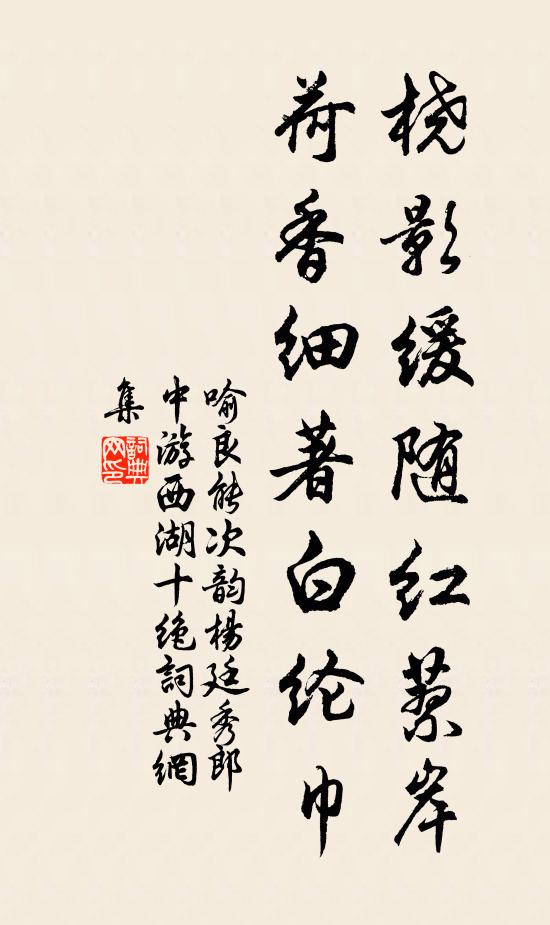 桡影缓随红蓼岸
荷香细著白纶巾
喻良能次韵楊廷秀郎
中游西湖十絶詞典網
集
詞典
网印